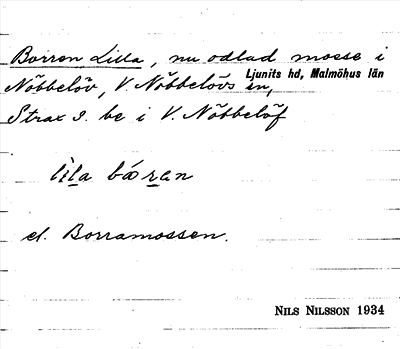 Borren Lilla, nu odlad mosse i
Nöbbelöv, V. Nöbbelövs sn, Ljunits hd, Malmöhus län
Strax s. be i V. Nöbbelöf
lìla bóran
el. Borramossen.
NILS NILSSON 1934